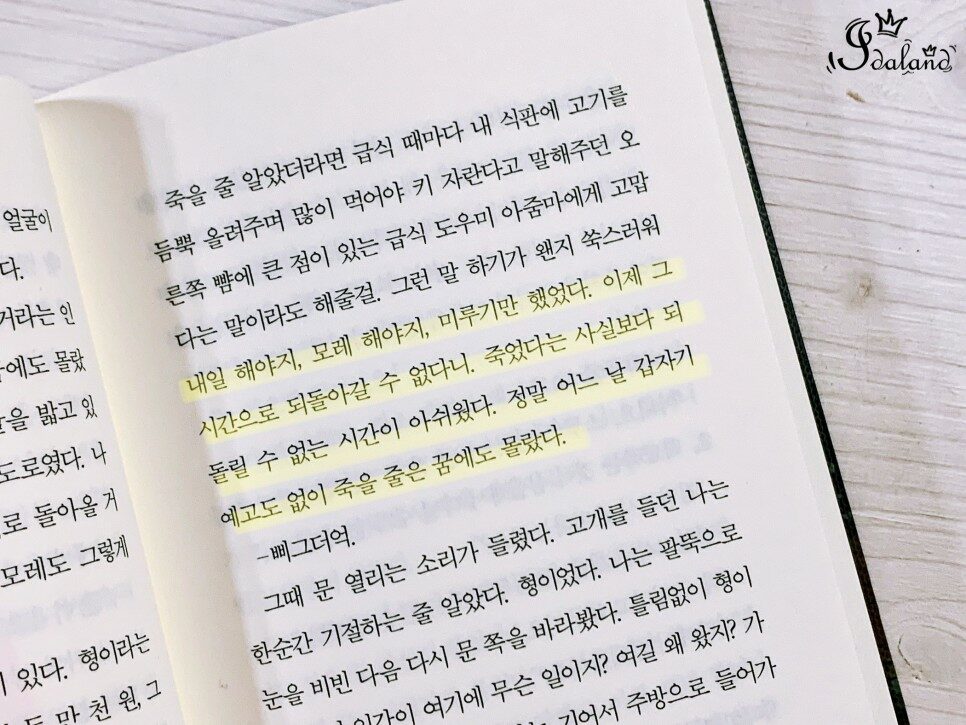 얼굴이
다.
거라는 인
에도 몰랐
을 밟고 있
도로였다. 나
로 돌아올 거
모레도 그렇게
있다. 형이라는
만 천 원, 그
죽을 줄 알았더라면 급식 때마다 내 식판에 고기를
듬뿍 올려주며 많이 먹어야 키 자란다고 말해주던 오
른쪽 뺨에 큰 점이 있는 급식 도우미 아줌마에게 고맙
다는 말이라도 해줄걸. 그런 말 하기가 왠지 쑥스러워
내일 해야지, 모레 해야지, 미루기만 했었다. 이제 그
시간으로 되돌아갈 수 없다니. 죽었다는 사실보다 되
돌릴 수 없는 시간이 아쉬웠다. 정말 어느 날 갑자기
예고도 없이 죽을 줄은 꿈에도 몰랐다.
-삐그더억.
그때 문 열리는 소리가 들렸다. 고개를 들던 나는
한순간 기절하는 줄 알았다. 형이었다. 나는 팔뚝으로
눈을 비빈 다음 다시 문 쪽을 바라봤다. 틀림없이 형이
인간이 여기에 무슨 일이지? 여길 왜 왔지? 가
기어서 주방으로 들어가
Idaland